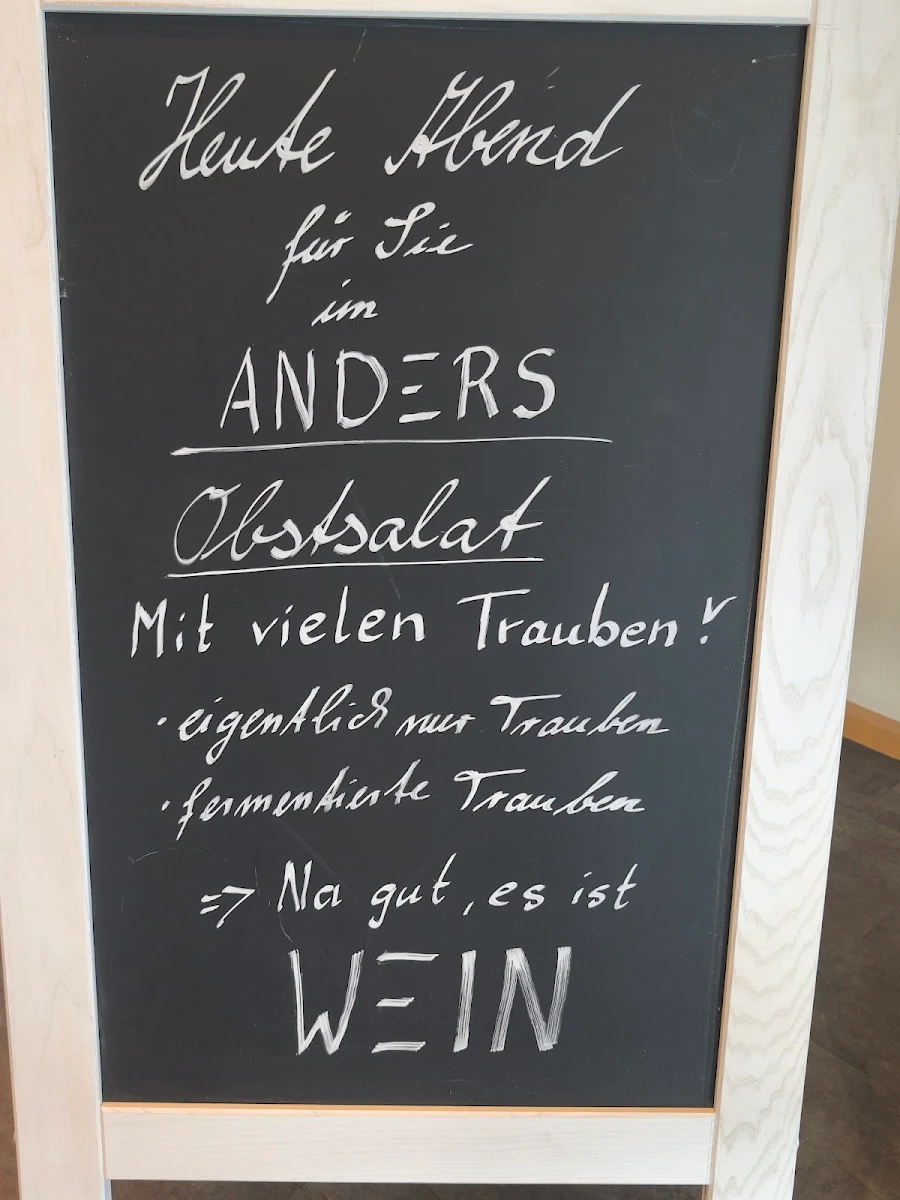 Heute Abend
für Sie
im
ANDERS
Obstsalat
Mit vielen Trauben!
· eigentlich nur Trauben
· fermentierte Trauben
=> Na gut, es ist
WEIN